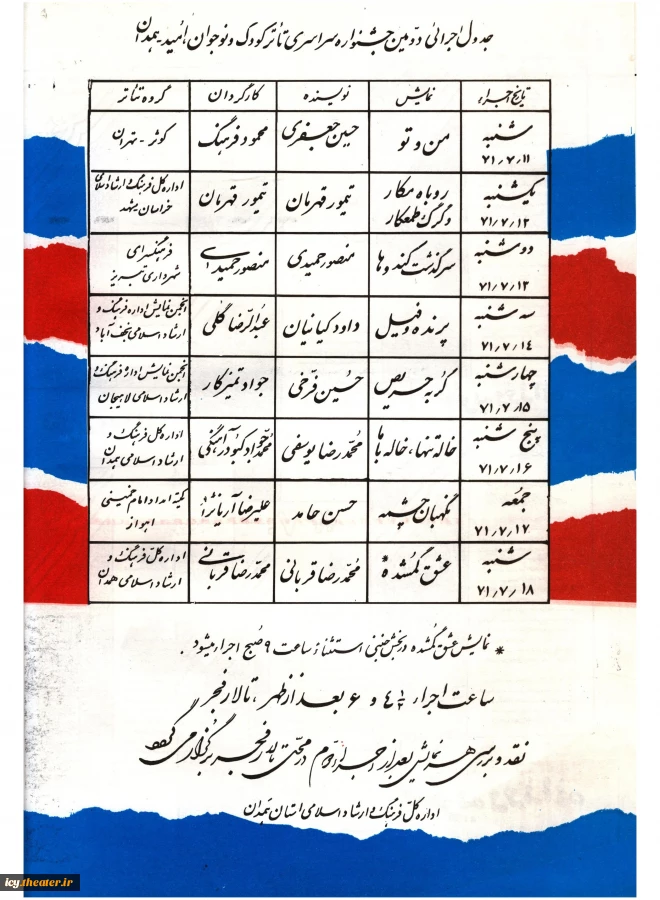 جدول اجرائی دوّمین جشنواره سراسری تأتر کودک و نوجوان، امید، همدان
تاریخ اجراء نمایش نویسنده کارگردان گروه تئاتر
شنبه ۷۱٫۷٫۱۱ من و تو حسین جعفری محمود فرهنگ کوثر - تهران
یکشنبه ۷۱٫۷٫۱۲ روباه مکار و گرگ طمعکار تیمور قهرمان تیمور قهرمان اداره کل فرهنگ و ارشاد اسلامی خراسان مشهد
دوشنبه ۷۱٫۷٫۱۳ سرگذشت کندوها منصور حمیدی منصور حمیدی فرهنگسرای شهرداری تبریز
سه شنبه ۷۱٫۷٫۱۴ پرنده و فیل داود کیانیان عبدالرّضا گلی انجمن نمایش اداره فرهنگ و ارشاد اسلامی نجف آباد
چهارشنبه ۷۱٫۷٫۱۵ گربه حریص حسین فرّخی جواد تمیزکار انجمن نمایش اداره فرهنگ و ارشاد اسلامی لاهیجان
پنج شنبه ۷۱٫۷٫۱۶ خاله تنها، خاله باها محمّدرضا یوسفی محمّد جواد کبودرآهنگی اداره کل فرهنگ و ارشاد اسلامی همدان
جمعه ۷۱٫۷٫۱۷ نگهبان چشمه حسن حامد علیرضا آریانژاد کمیته امداد امام خمینی اهواز
شنبه ۷۱٫۷٫۱۸ عشق گمشده * محمّدرضا قربانی محمّدرضا قربانی اداره کلّ فرهنگ و ارشاد اسلامی همدان
* نمایش عشق گمشده در بخش جنبی استثناً از ساعت ۹ صبح اجراء میشود.
ساعت اجراء ۴½ و ۶ بعد از ظهر، تالار فجر
نقد و بررسی همه نمایش بعد از اجرای دوّم در محل تالار فجر برگزار می گردد
اداره کلّ فرهنگ و ارشاد اسلامی استان همدان
icy.theater.ir